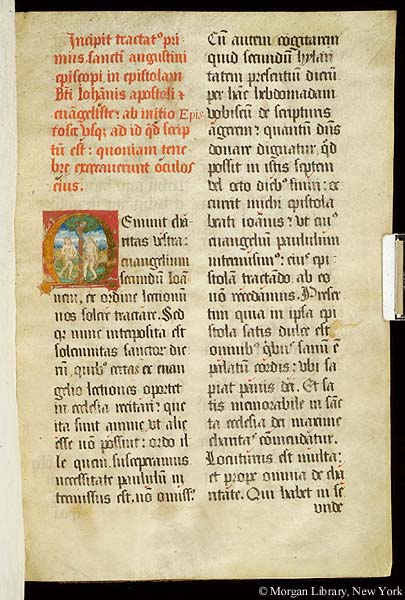 Incipit tractatꝰ pri
mus sancti augustini
episcopi in epistolam
Bti Iohānis apostoli ⁊
euāgeliste: ab initio Epis
tole vsqꝫ ad id qd̄ scrip
tū est: quoniam tene
bre excecauerunt oculos
eius.
Eminit cha
ritas vestra:
euangelium
secundū Ioā
nem, ex ordine lectionū
nos solere tractare. Sed
qꝫ nunc interposita est
solennitas sanctor die
rū, quibꝰ certas ex euan
gelio lectiones oportet
in ecclesia recitari: que
ita sunt annue vt alie
esse nō possint: ordo il
le quem susceperamus
necessitate paululum in
termissus est, nō omissꝰ.
Cū autem cogitarem
quid secundū hylari
tatem presentiū dierū
per hāc hebdomadam
vobiscū de scripturis
agerem: quantū dn̄s
donare dignatur, qd̄
possit in istis septem
vel octo diebꝰ finiri: oc
currit michi epistola
beati ioānis: vt cuiꝰ
euangeliū paululum
intermisimꝰ: eiꝰ epi
stolā tractādo, ab eo
nō recedamus. Preser
tim quia in ipsa epi
stola satis dulce est
omnibꝰ qbꝰ sanū ē
palatū cordis: vbi sa
piat panis dei. Et sa
tis memorabile in sāc
ta ecclesia dei maxime
charitaꝰ cōmēdatur.
Locuturus est multa:
et prope omnia de cha
ritate. Qui habet in se
vnde
© Morgan Library, New York